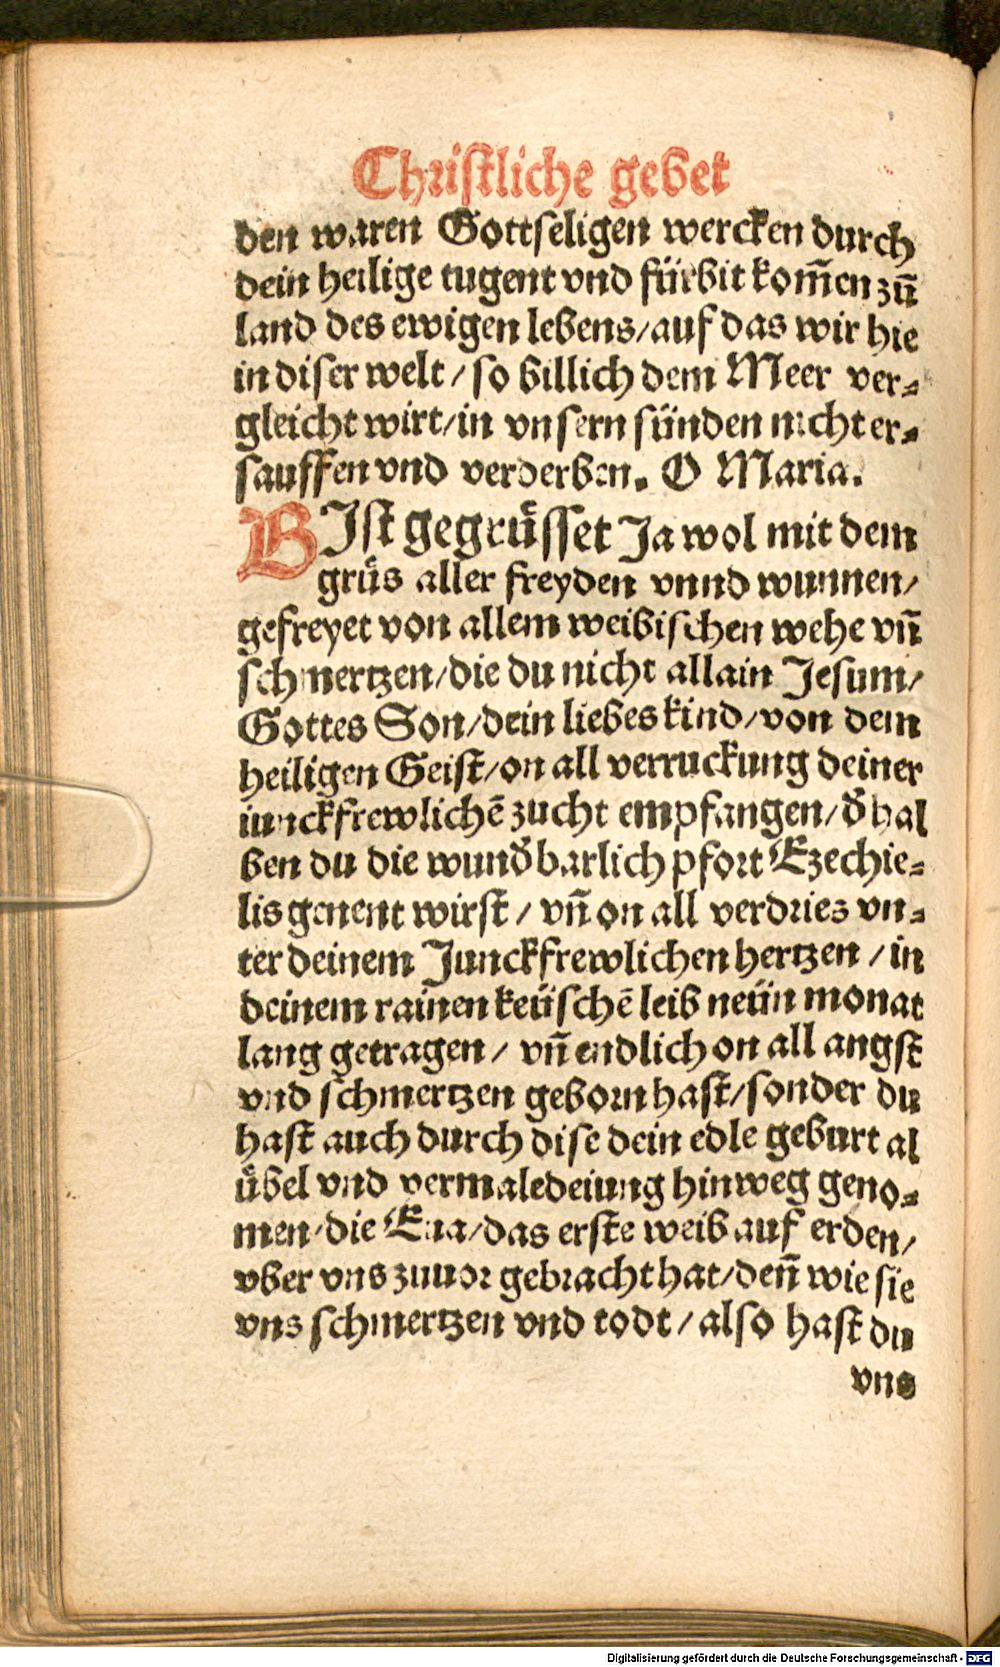 Christliche gebet
den waren Gottseligen wercken durch
dein heilige tugent vnd fürbit kom̄en zů
land des ewigen lebens/auf das wir hie
in diser welt / so billich dem Meer ver⸗
gleicht wirt/in vnsern sünden nicht er⸗
sauffen vnd verderben. O Maria.
BIst gegrůsset Ja wol mit dem
grůs aller freyden vnnd wunnen/
gefreyet von allem weibischen wehe vn̄
schmertzen/die du nicht allain Jesum/
Gottes Son/dein liebes kind/von dem
heiligen Geist/on all verruckung deiner
iunckfrewlichē zucht empfangen/d̄hal
ben du die wund̄barlich pfort Ezechie⸗
lis genent wirst / vn̄ on all verdries vn⸗
ter deinem Junckfrewlichen hertzen / in
deinem rainen keüschē leib neün monat
lang getragen / vn̄ endlich on all angst
vnd schmertzen geborn hast/sonder du
hast auch durch dise dein edle geburt al
ůbel vnd vermaledeiung hinweg geno⸗
men/die Eua/das erste weib auf erden/
vber vns zuuor gebracht hat/den̄ wie sie
vns schmertzen vnd todt / also hast du
vns
Digitalisierung gefördert durch die Deutsche Forschungsgemeinschaft - DFG